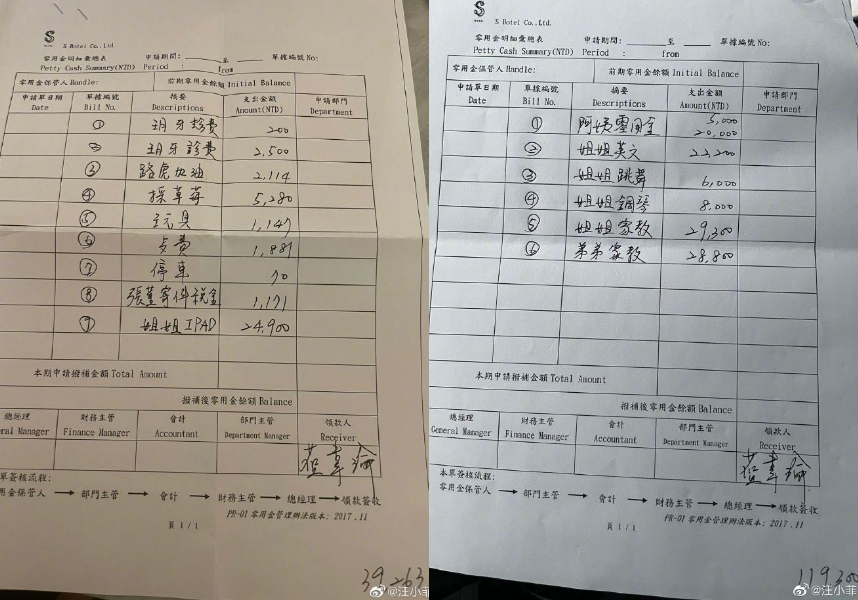 S Hotel Co.,Ltd.
零用金明細彙總表 申請期間: 至 單據編號 No:
Petty Cash Summary(NTD) Period : from
零用金保管人 Handle: 前期零用金餘額 Initial Balance
申請單日期 單據編號 摘要 支出金額 申請部門
Date Bill No. Descriptions Amount(NTD) Department
① 玥牙診費 200
② 玥牙診費 2,500
③ 路虎加油 2,114
④ 採草莓 5,280
⑤ 玩具 1,147
⑥ 费 1,881
⑦ 停車 70
⑧ 寄件稅金 1,171
⑨ 姐姐 IPAD 24,900
本期申請撥補金額 Total Amount
撥補後零用金餘額 Balance
總經理 財務主管 會計 部門主管 領款人
eral Manager Finance Manager Accountant Department Manager Receiver
單簽核流程:
用金保管人 → 部門主管 → 會計 → 財務主管 → 總經理 → 領款簽收
PR-01 零用金管理辦法版本: 2017.11
頁 1 / 1
39263
@汪小菲
S Hotel Co.,Ltd.
零用金明細彙總表 申請期間: 至 單據編號 No:
Petty Cash Summary(NTD) Period : from
零用金保管人 Handle: 前期零用金餘額 Initial Balance
申請單日期 單據編號 摘要 支出金額 申請部門
Date Bill No. Descriptions Amount(NTD) Department
① 阿姨零用金 5,000
20,000
② 姐姐英文 22,200
③ 姐姐跳舞 6,000
④ 姐姐鋼琴 8,000
⑤ 姐姐家教 29,300
⑥ 弟弟家教 28,800
本期申請撥補金額 Total Amount
撥補後零用金餘額 Balance
總經理 財務主管 會計 部門主管 領款人
General Manager Finance Manager Accountant Department Manager Receiver
本單簽核流程:
零用金保管人 → 部門主管 → 會計 → 財務主管 → 總經理 → 領款簽收
PR-01 零用金管理辦法版本: 2017.11
頁 1 / 1
119300
@汪小菲